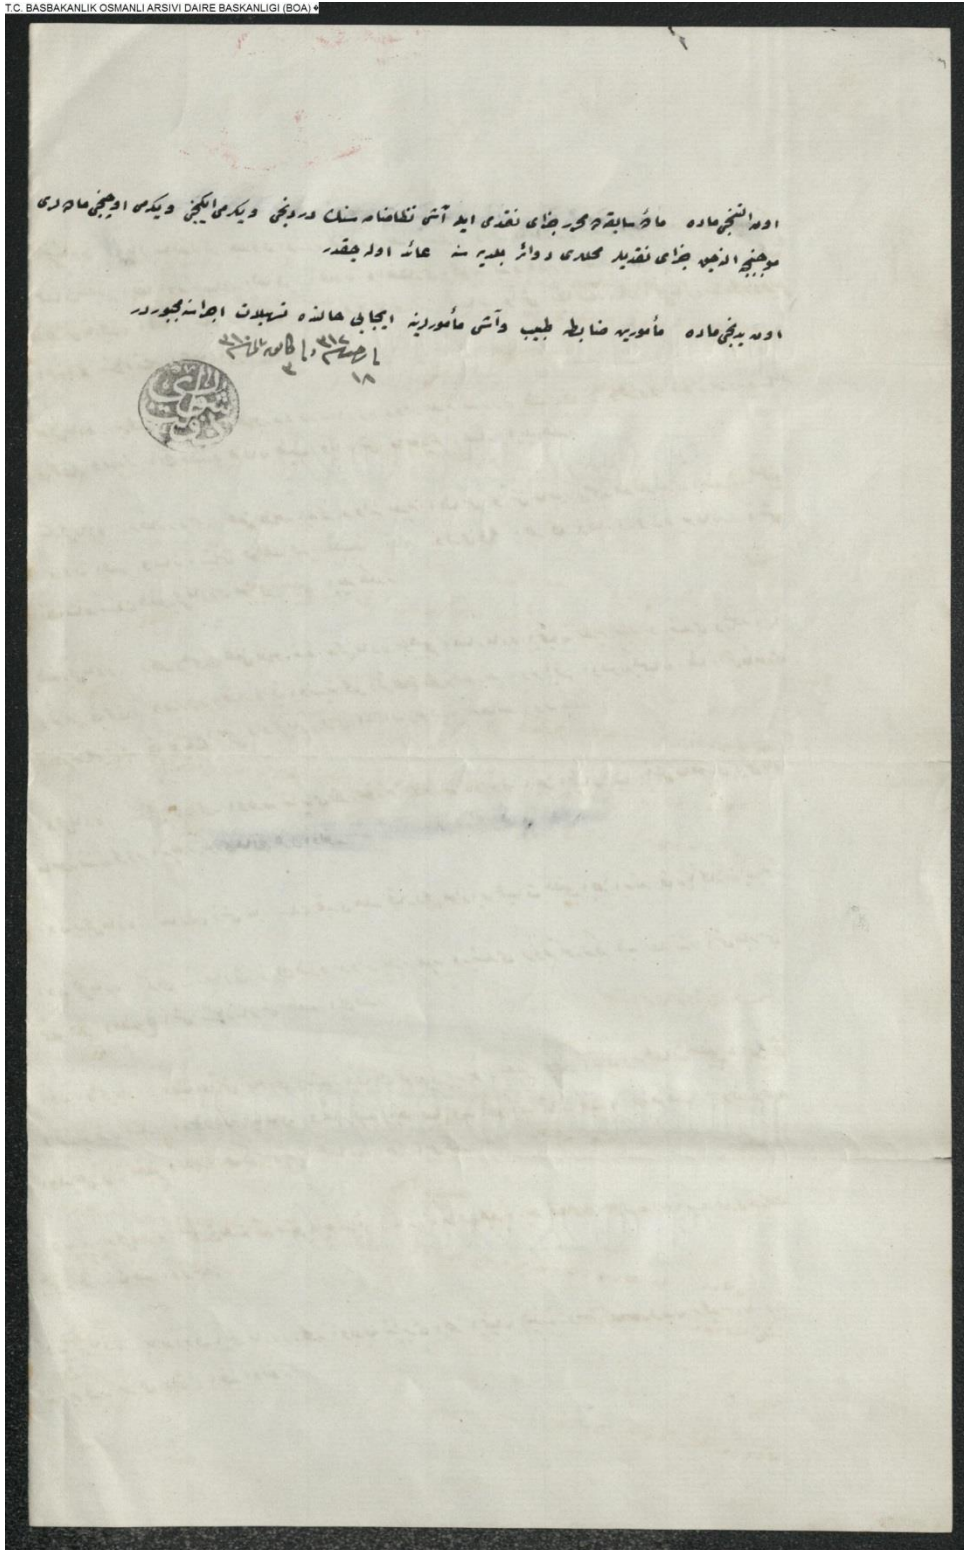 T.C. BASBAKANLIK OSMANLI ARSIVI DAIRE BASKANLIGI (BOA)
اون التنجی ماده ماده سابقه ده محرر جزای نقدی ایله آشی نظامنامه سنك دردنجی ویكرمی ایكنجی ویكرمی اوچنجی ماده لری
موجبنجه النه جق جزای نقدیلر محللری دوائر بلدیه سنه عائد اوله جقدر
اون یدنجی ماده مأمورین ضابطه طبیب وآشی مأمورلرینه ایجابی حالنده تسهیلات اجراسنه مجبوردر
١٨ ٣